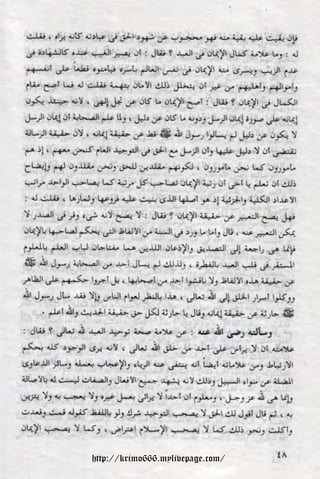 فإن بقيت عليه بقية منه فهو محجوب عن شهود الحق في عبادته كأنه يراه ، فقلت
له : وما علامة كمال الإيمان في العبد ؟ فقال : أن يصير الغيب عنده كالشهادة في
عدم الريب ويسري منه الإيمان في نفس العالم بأسره فيأمنوه قطعاً على أنفسهم
وأموالهم وأهليهم من غير أن يتخلل ذلك الأمان بتهمة فقلت له فما أصح مقام
الكمال في الإيمان ؟ فقال : أصح الإيمان ما كان عن تجل إلهي ، لأنه حينئذ يكون
إيمانه على صورة إيمان الرسل ودونه ما كان عن دليل ، ولما علم الصحابة أن إيمان الرسل
لا يكون عن دليل لم يسألوا رسول الله ﷺ قط عن حقيقة إيمانه ، لأن حقيقة الرسالة
تقتضي أن لا دليل عليها وأن الرسل مع الحق في التوحيد العام كنحن معهم ، إذ هم
مأمورون كما نحن مأمورون ، لكونهم مقلدين للحق ونحن مقلدون لهم وإيضاح
ذلك أن تعلم يا أخي أن رتبة الإيمان تصاحب كل مرتبة كما يصاحب الواحد مراتب
الأعداد الكلية والجزئية إذ هو أصلها الذي بنيت عليه فروعها وثمارها ، فقلت له :
فهل يصح التعبير عن حقيقة الإيمان ؟ فقال : لا يصح لأنه شيء وقر في الصدر لا
يمكن التعبير عنه ، قال وأما ما ورد في السنة من الألفاظ التي يحكم لصاحبها بالإيمان
فإنما هي راجعة إلى التصديق والإذعان اللذين هما مفتاحان لباب العلم بالمعلوم
المستقر في قلب العبد بالفطرة ، ولذلك لم يسأل أحد من الصحابة رسول الله ﷺ
عن حقيقة هذه الألفاظ ولا ناقشوا أحد من أصحابها ، بل أجروا حكمهم على الظاهر
ووكلوا أسرار الخلق إلى الله تعالى ، هذا بالنظر لعوام الناس وإلا فقد سأل رسول الله
ﷺ حارثة عن حقيقة إيمانه وقال يا حارثة لكل حق حقيقة الحديث والله أعلم .
وسألته رضي الله عنه : عن علامة صحة توحيد العبد لله تعالى ؟ فقال :
علامته أن لا يرأس على أحد من خلق الله تعالى ، لأنه يرى الوجود كله بحكم
الارتباط ومن علاماته أيضاً أنه ينتفي عنه الرياء والإعجاب بعمله وسائر الدعاوى
المضلة عن سواء السبيل وذلك لأنه يشهد جميع الأفعال والصفات ليست له بالأصالة
وإنما هي لله عز وجل ، ومعلوم أن أحداً لا يرائي بعمل غيره ولا يعجب به ولا يتزين
به ، ثم قال أقول لك الحق لا يصحب التوحيد شرك ولو باللفظ كقوله قمت وقعدت
وأكلت ونحو ذلك كما لا يصحب الإسلام إعتراض ، وكما لا يصحب الإيمان
٤٨
http://krimo666.mylivepage.com/